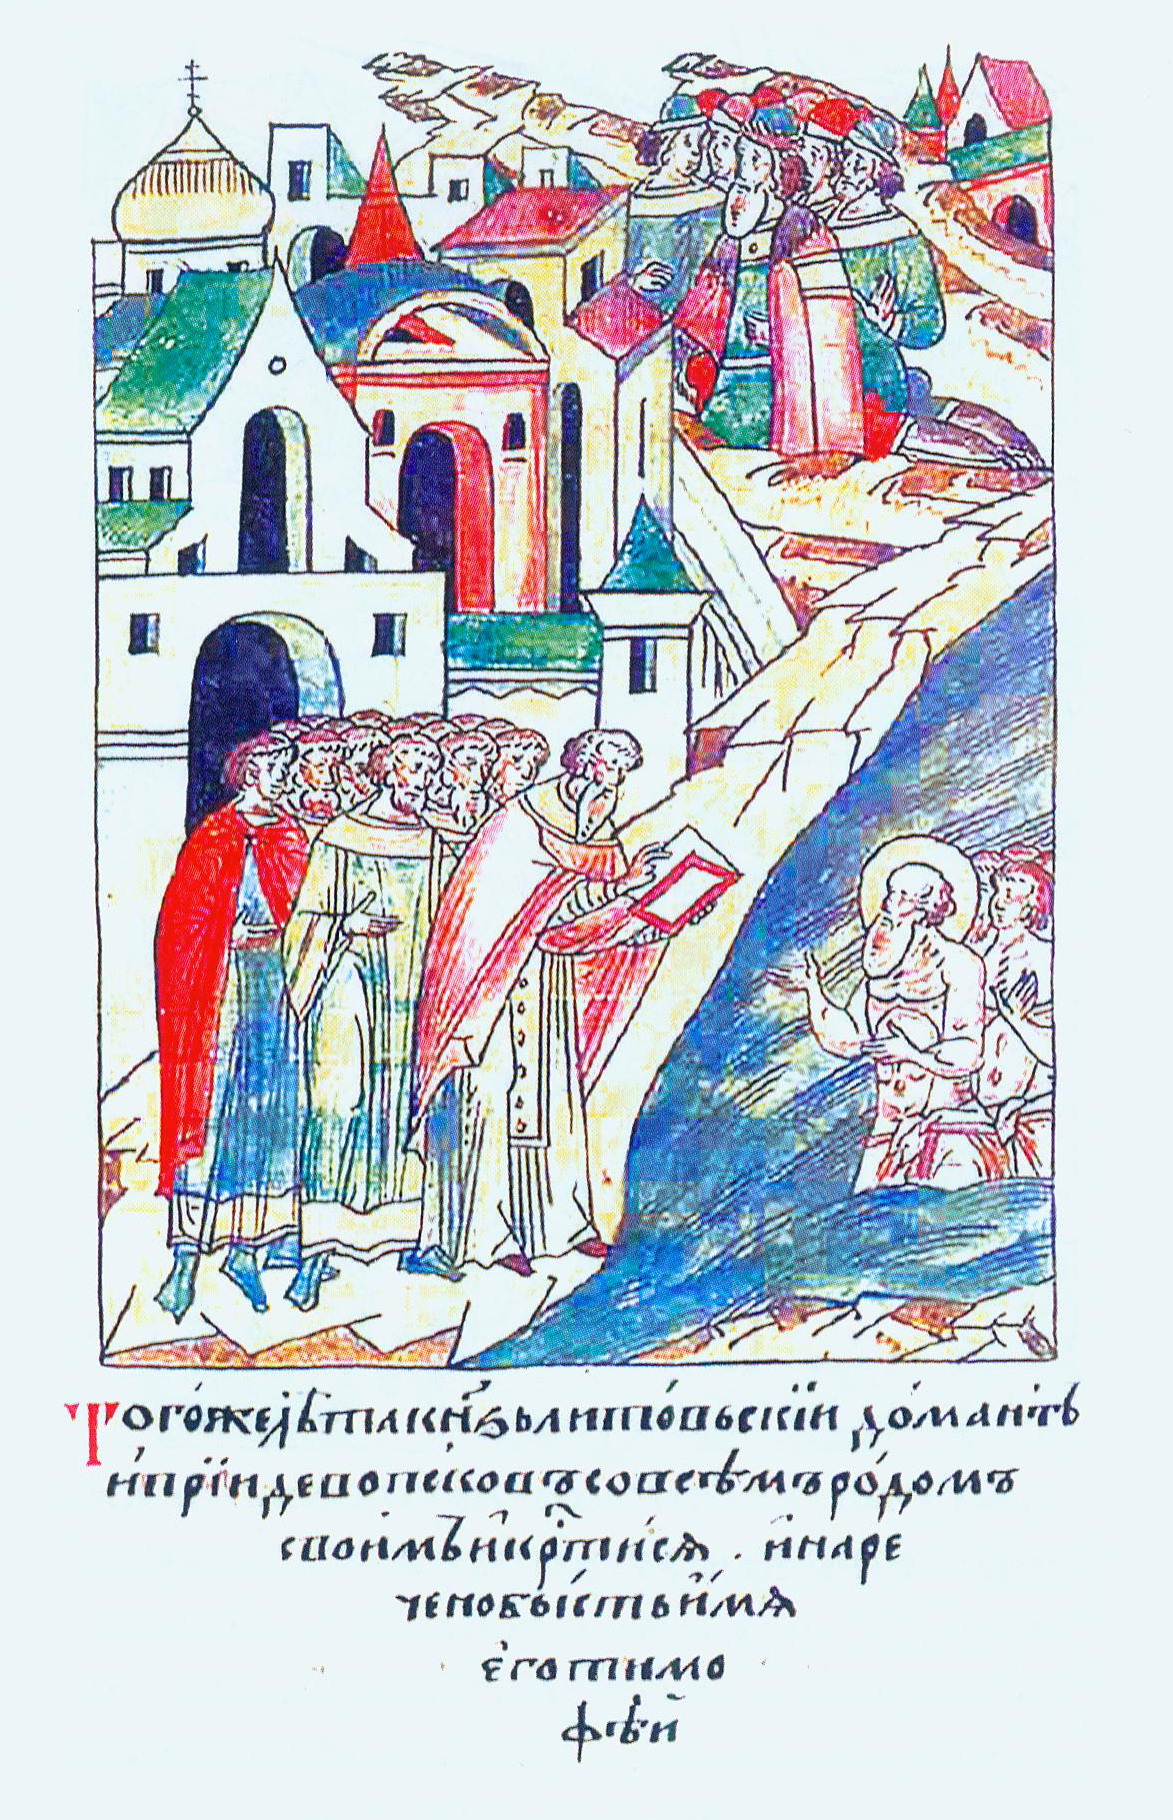 Тогожелѣтакн҃ѕьлитовьскїи до́мантъ
и҆прїидевопсковъсовсѣмъро́домъ
своимъ и҆крⷭ҇тисѧ . и҆наре
ченобы́стьи҆́мѧ
є҆готимо
фѣй